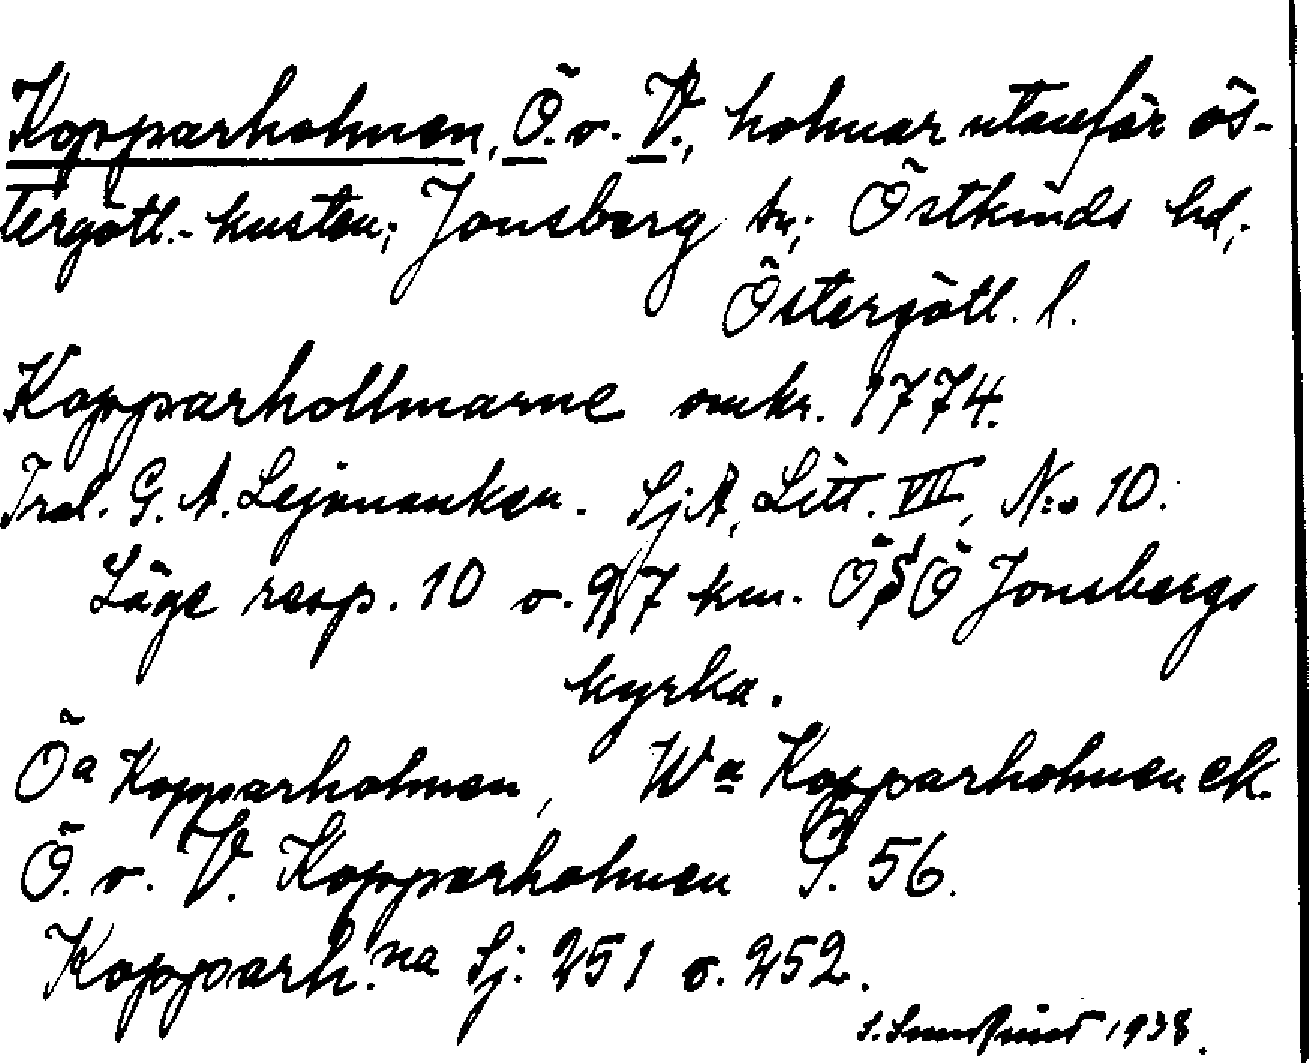 Kopparholmen, Ö. o. V., holmar utanför ös-
tergötl.-kusten; Jonsberg sn; Östkinds hd,
Östergötl. l.
Kopparhollmarne omkr. 1774.
G. A. Lejonanken. SjA, Litt. VII, N:o 10.
Läge resp. 10 o. 9,7 km. ÖSÖ Jonsbergs
kyrka.
Öa Kopparholmen, Wa Kopparholmen ek.
Ö. o. V. Kopparholmen G. 56.
Kopparh.na Sj. 251 o. 252.
1938.